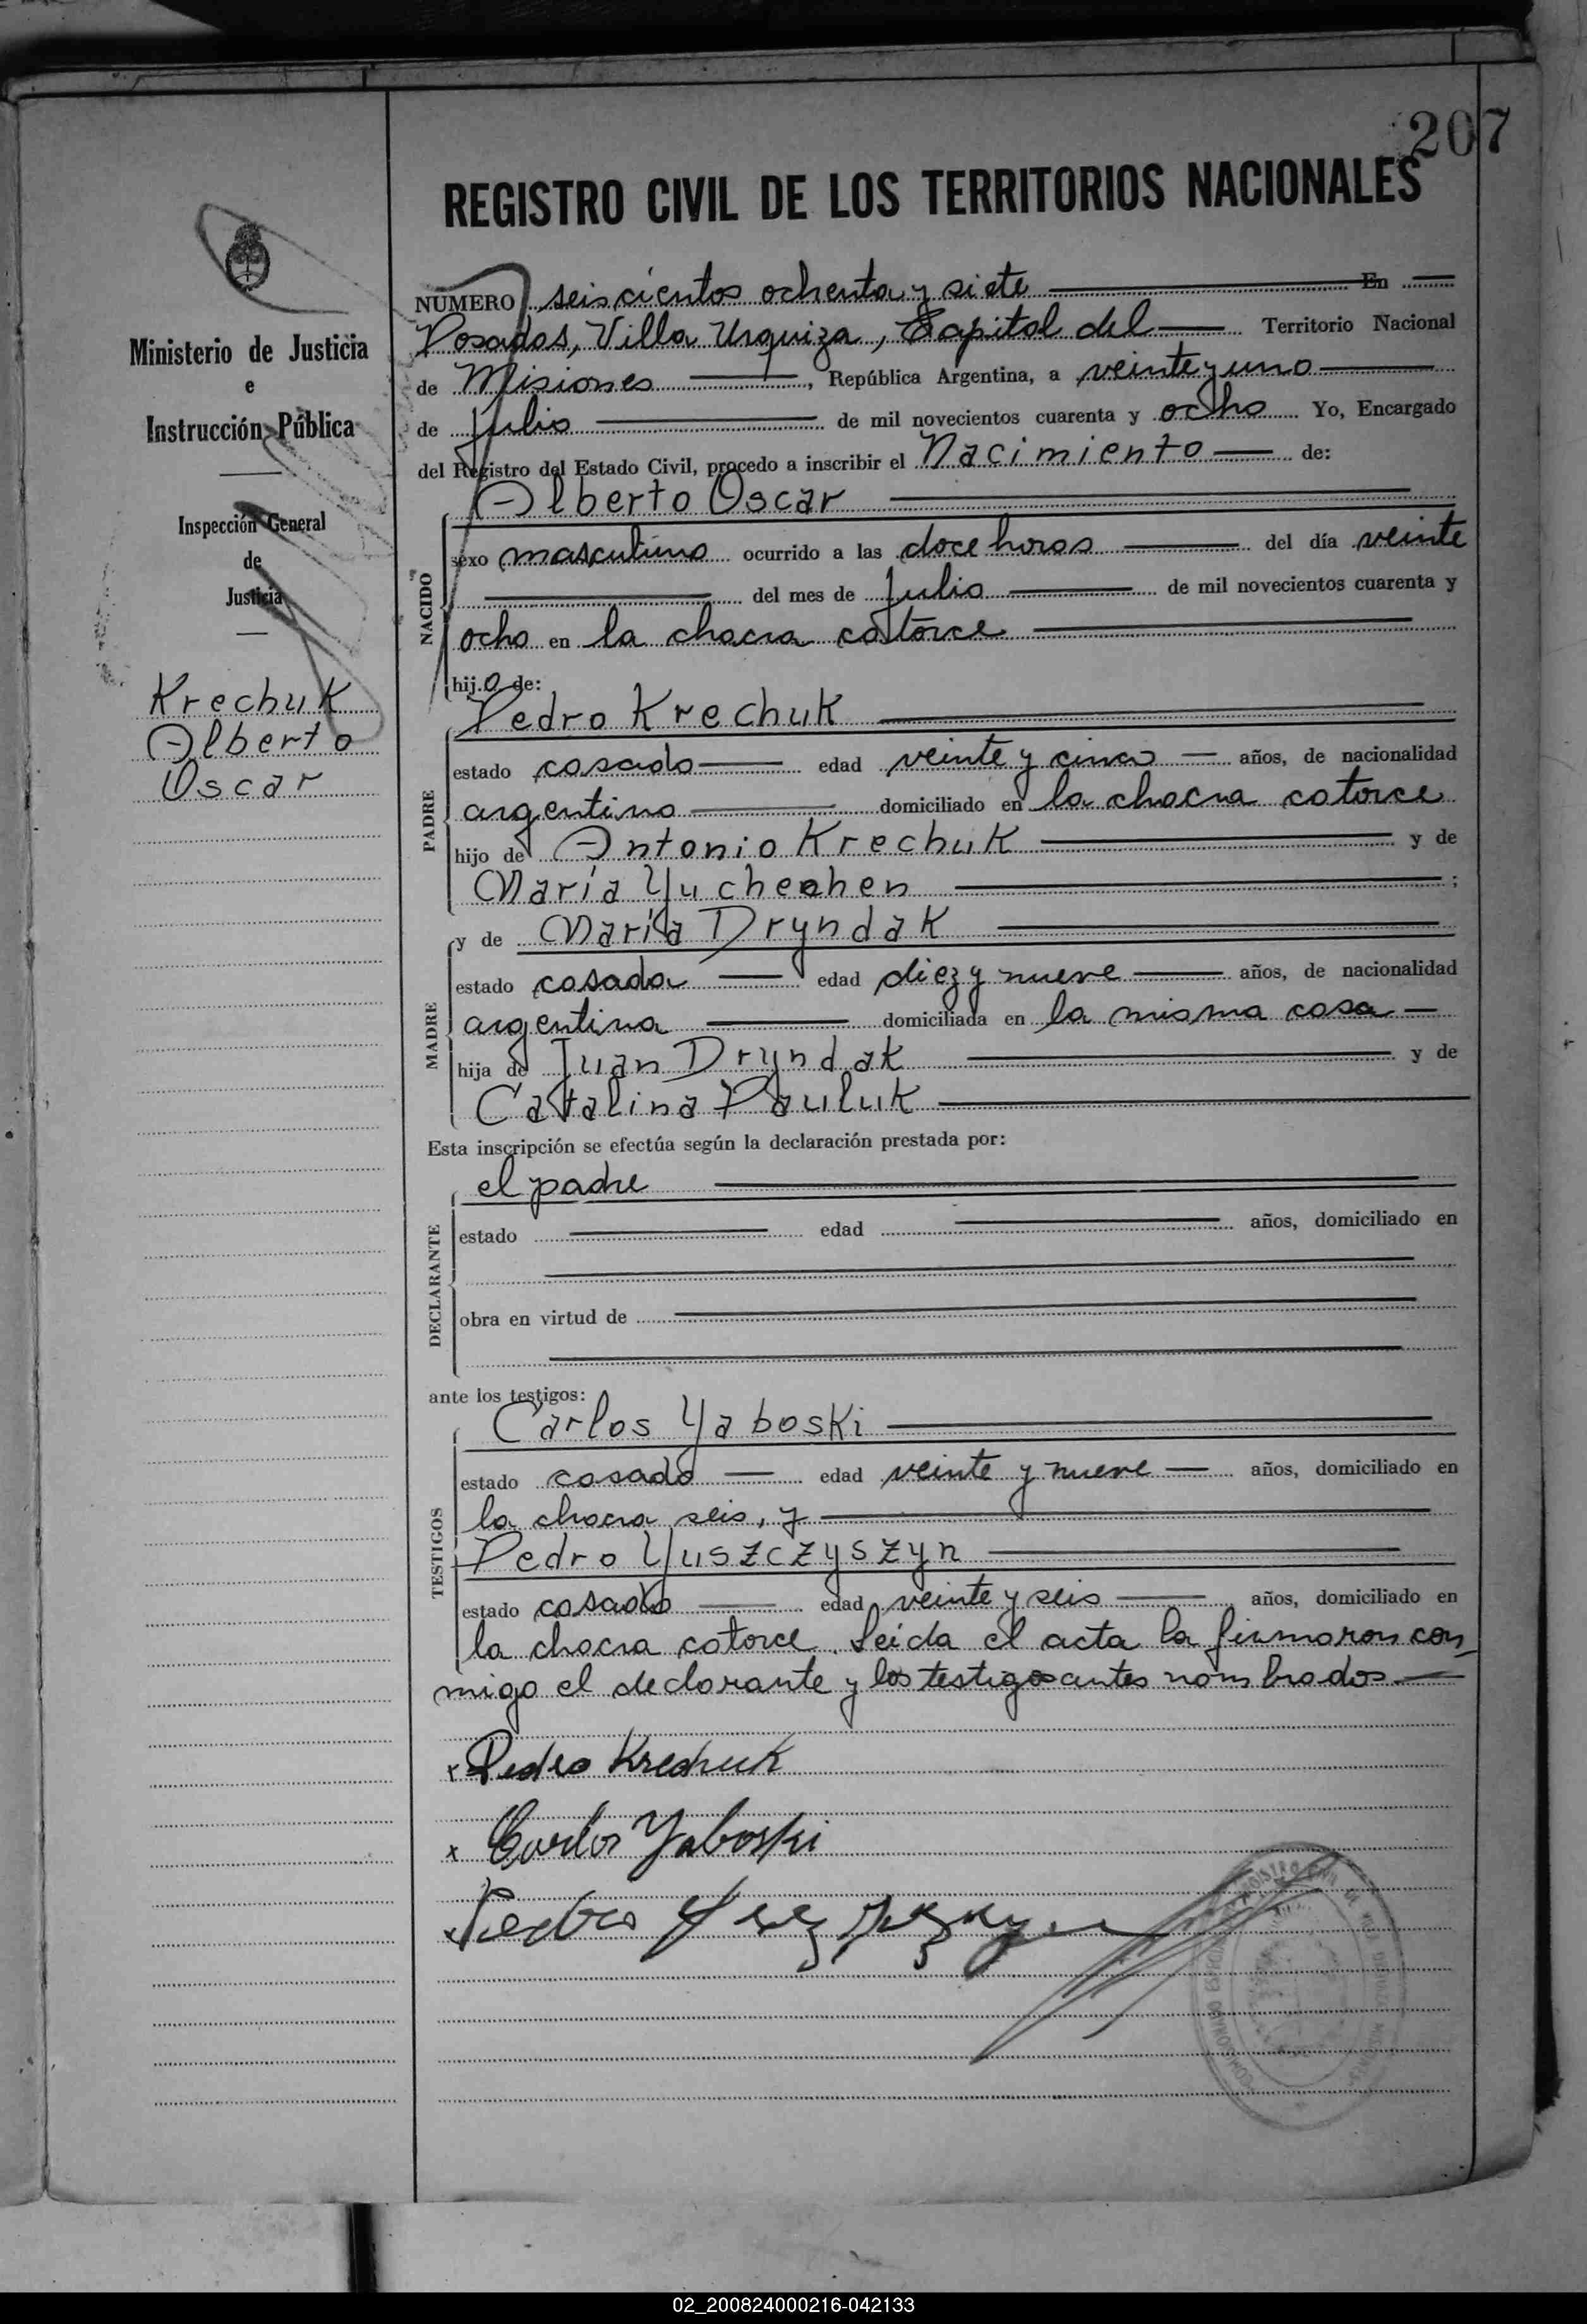 207
REGISTRO CIVIL DE LOS TERRITORIOS NACIONALES
Ministerio de Justicia
e
Instrucción Pública
Inspección General
de
Justicia
Krechuk
Alberto
Oscar
NUMERO seiscientos ochenta y siete En
Posadas, Villa Urquiza, Capital del Territorio Nacional
de Misiones, República Argentina, a veinte y uno
de julio de mil novecientos cuarenta y ocho Yo, Encargado
del Registro del Estado Civil, procedo a inscribir el Nacimiento de:
Alberto Oscar
NACIDO
sexo masculino ocurrido a las doce horas del día veinte
del mes de julio de mil novecientos cuarenta y
ocho en la chacra catorce
hijo de:
Pedro Krechuk
PADRE
estado casado edad veinte y cinco años, de nacionalidad
argentino domiciliado en la chacra catorce
hijo de Antonio Krechuk y de
María Yuchechen;
y de María Dryndak
MADRE
estado casada edad diez y nueve años, de nacionalidad
argentina domiciliada en la misma casa
hija de Juan Dryndak y de
Catalina Pauluk
Esta inscripción se efectúa según la declaración prestada por:
el padre
DECLARANTE
estado edad años, domiciliado en
obra en virtud de
ante los testigos:
Carlos Yaboski
TESTIGOS
estado casado edad veinte y nueve años, domiciliado en
la chacra seis, y
Pedro Yuszczyszyn
estado casado edad veinte y seis años, domiciliado en
la chacra catorce. Leída el acta la firmaron con-
migo el declarante y los testigos antes nombrados
x Pedro Krechuk
x Carlos Yaboski
x Pedro
REGISTRO CIVIL
02_200824000216-042133